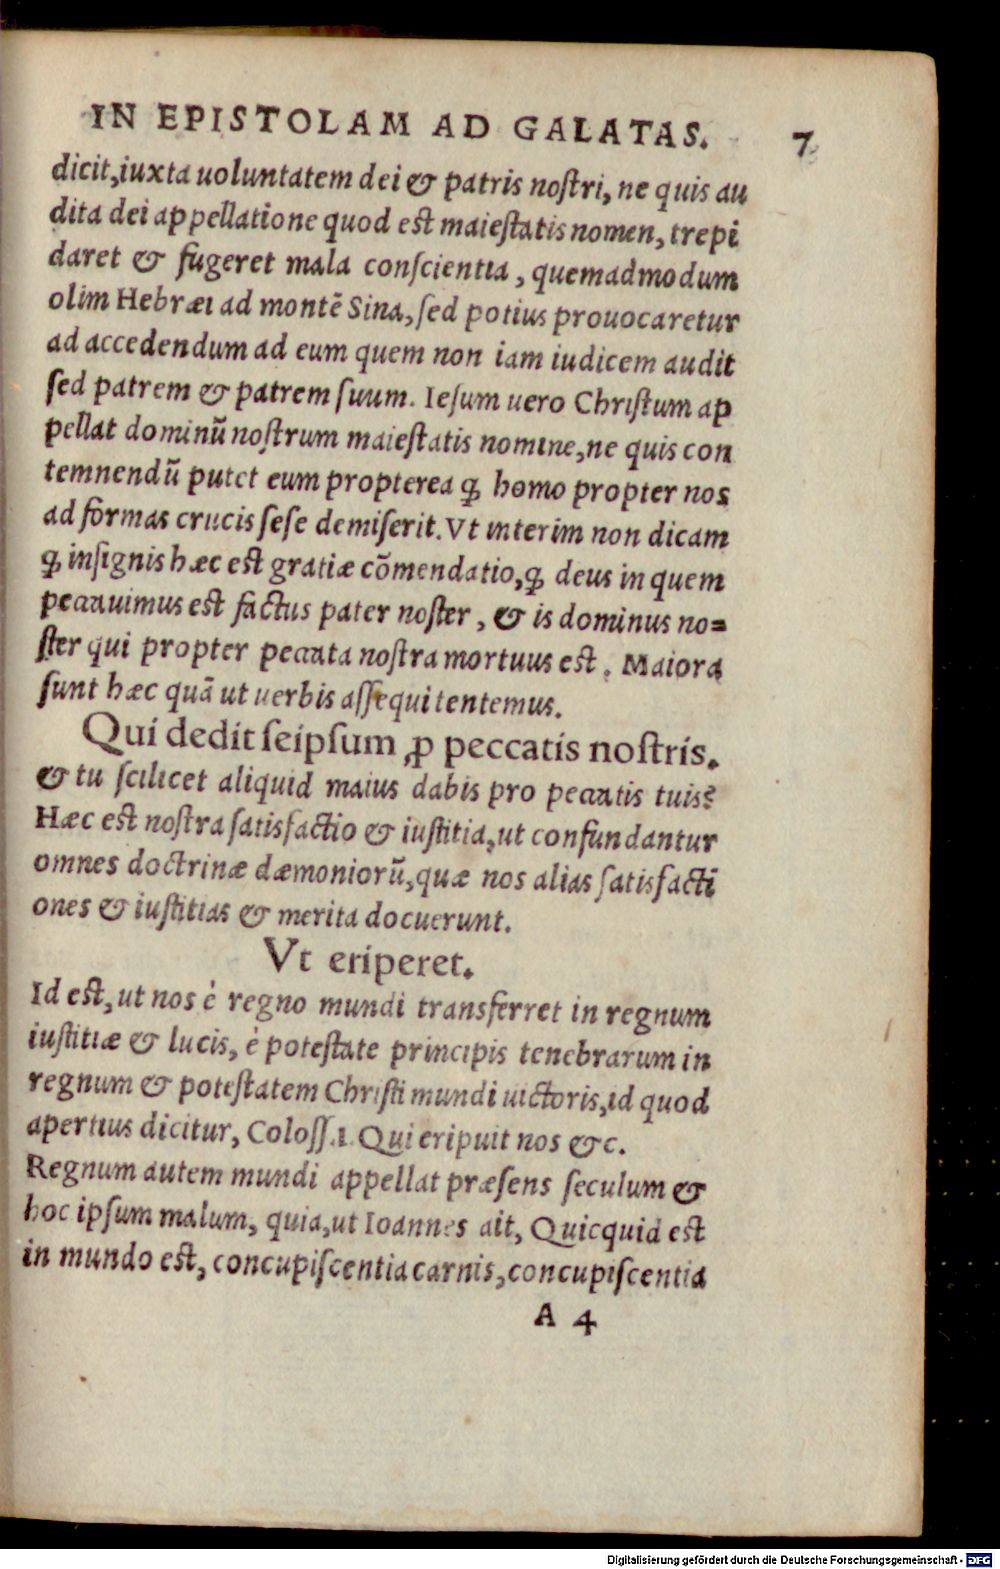 IN EPISTOLAM AD GALATAS. 7
dicit,iuxta uoluntatem dei & patris noſtri, ne quis au
dita dei appellatione quod eſt maieſtatis nomen, trepi
daret & fugeret mala conſcientia, quemadmodum
olim Hebræi ad montẽ Sina, ſed potius prouocaretur
ad accedendum ad eum quem non iam iudicem audit
ſed patrem & patrem ſuum. Ieſum uero Chriſtum ap
pellat dominũ noſtrum maieſtatis nomine,ne quis con
temnendũ putet eum propterea ꝙ homo propter nos
ad formas crucis ſeſe demiſerit. Vt interim non dicam
ꝙ inſignis hæc eſt gratiæ cõmendatio,ꝙ deus in quem
peccauimus eſt factus pater noſter, & is dominus no=
ſter qui propter peccata noſtra mortuus eſt. Maiora
ſunt hæc quã ut uerbis aſſequi tentemus.
Qui dedit ſeipſum ꝓ peccatis noſtris.
& tu ſcilicet aliquid maius dabis pro peccatis tuis?
Hæc eſt noſtra ſatisfactio & iuſtitia,ut confundantur
omnes doctrinæ dæmoniorũ,quæ nos alias ſatisfacti
ones & iuſtitias & merita docuerunt.
Vt eriperet.
Id eſt,ut nos è regno mundi transferret in regnum
iuſtitiæ & lucis, è poteſtate principis tenebrarum in
regnum & poteſtatem Chriſti mundi uictoris,id quod
apertius dicitur, Coloſſ.1. Qui eripuit nos &c.
Regnum autem mundi appellat præſens ſeculum &
hoc ipſum malum, quia,ut Ioannes ait, Quicquid eſt
in mundo eſt, concupiſcentia carnis,concupiſcentia
A 4
Digitalisierung gefördert durch die Deutsche Forschungsgemeinschaft - DFG